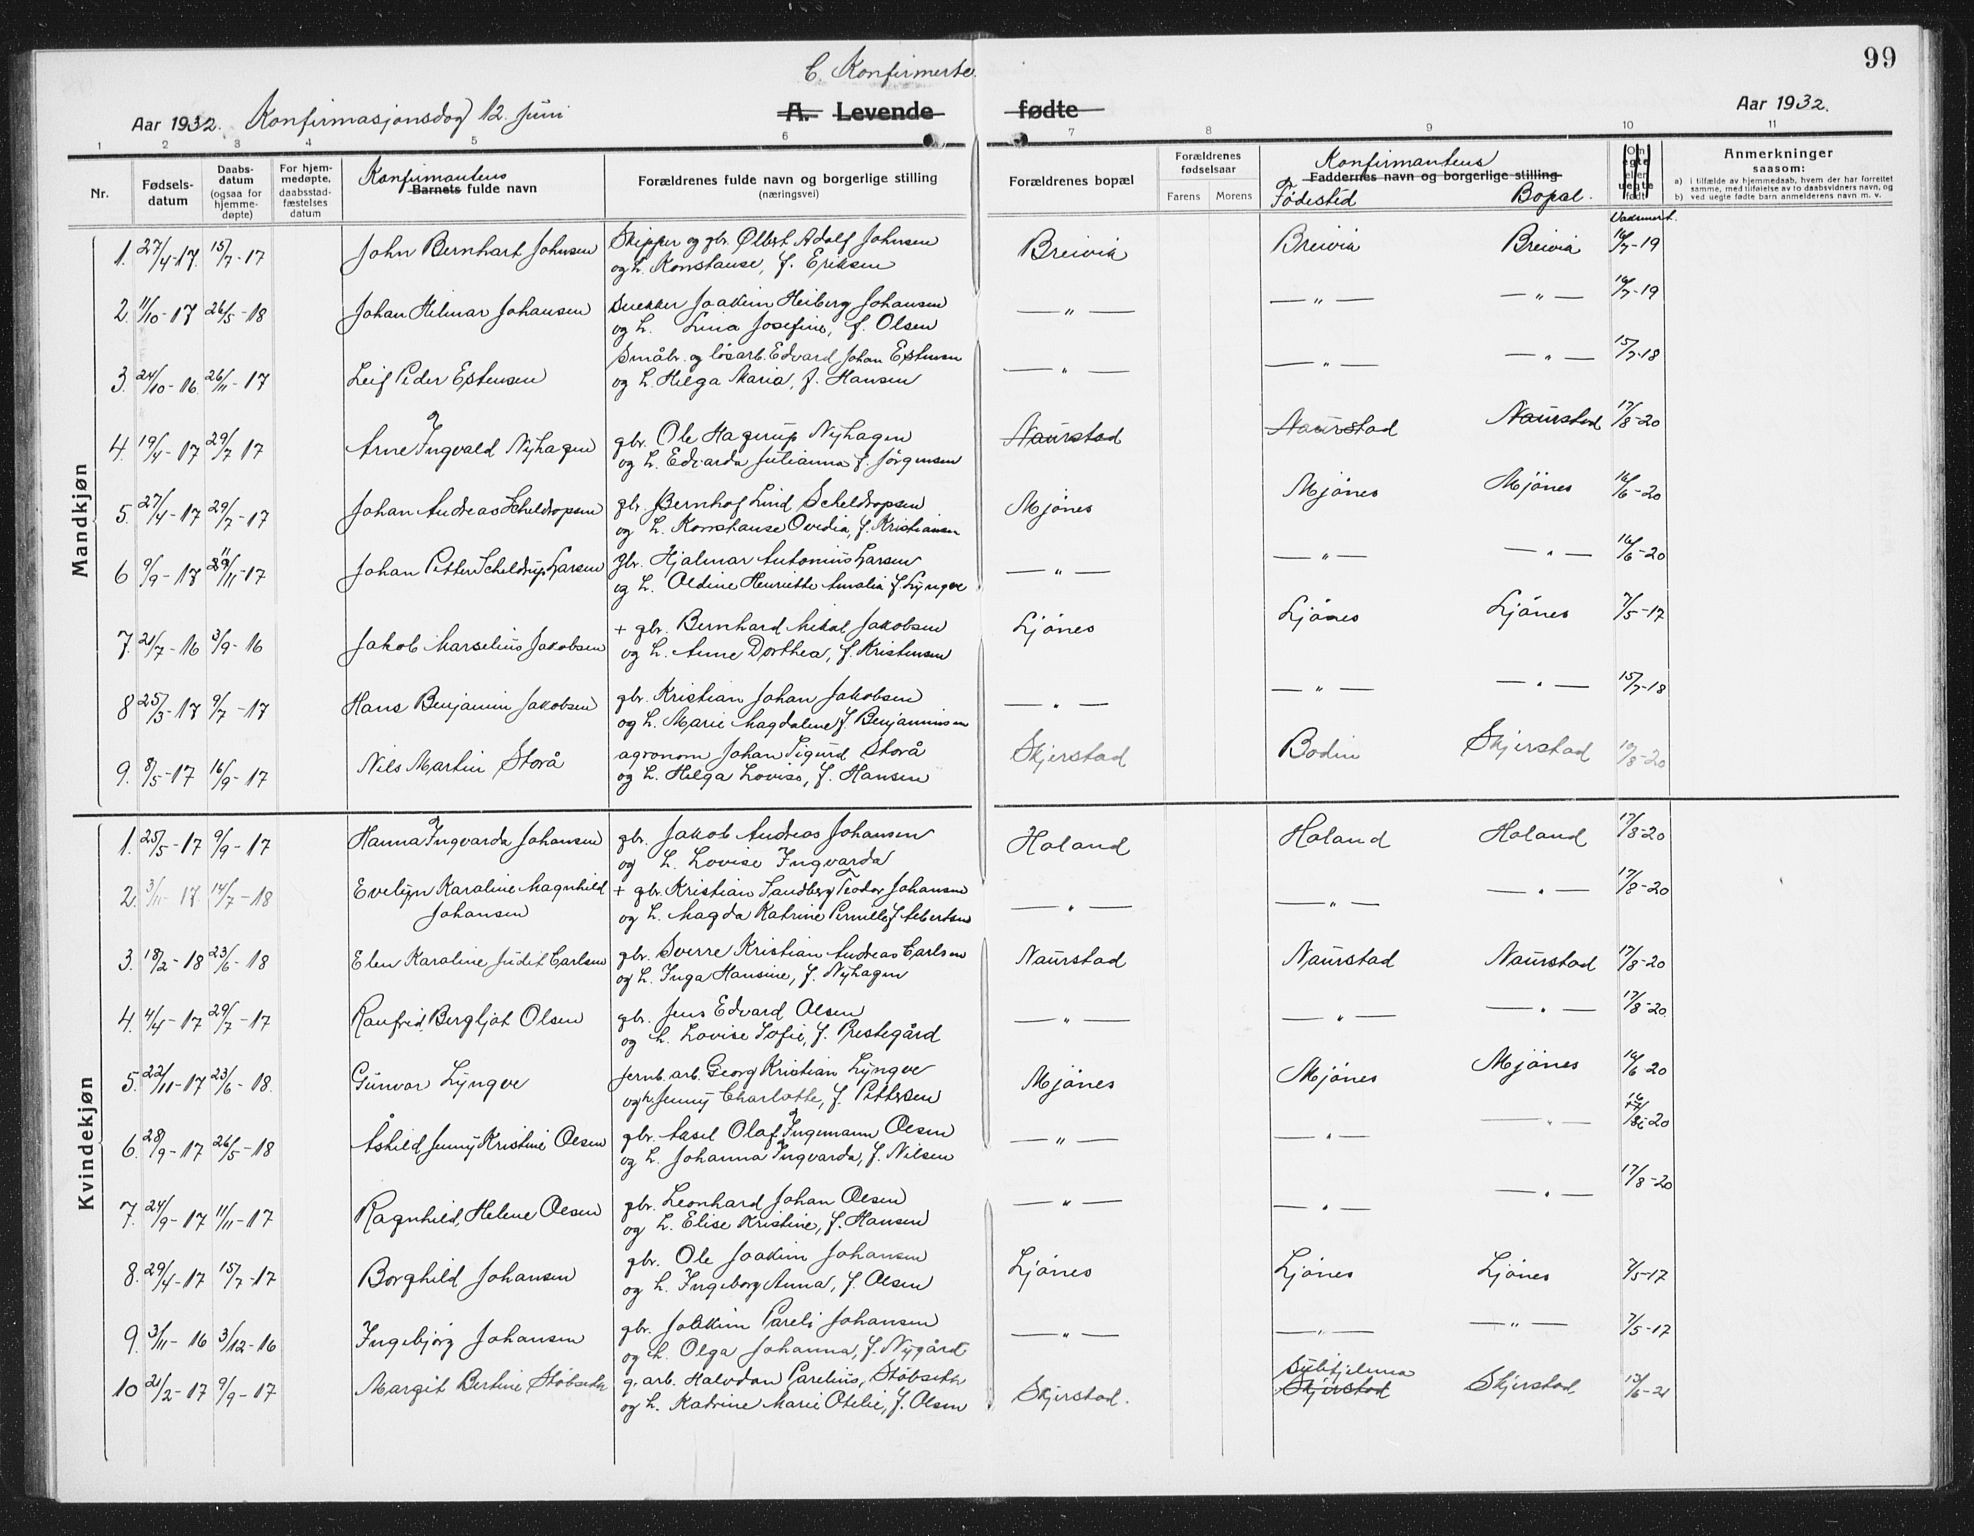 99
C. Konfirmerte.
Aar 1932. Konfirmasjonsdag 12. Juni A. Levende fødte Aar 1932.
1 2 3 4 5 6 7 8 9 10 11
Nr. Fødsels-datum Daabs-datum (ogsaa for hjemme-døpte) For hjem-medøpte, daabsstad-fæstelses datum Konfirmantens Barnets fulde navn Forældrenes fulde navn og borgerlige stilling (næringsvei) Forældrenes bopæl Forældrenes fødselsaar Farens Morens Konfirmantens Faddernes navn og borgerlige stilling Fødested Bopæl. Om egte eller uegte født Anmerkninger saasom:
a) i tilfælde av hjemmedaab, hvem der har forrettet samme, med tilføielse av to daabsvidners navn, og
b) ved uegte fødte barn anmelderens navn m. v.
Mandkjøn
1. 27/4-17. 15/7-17 John Bernhart Johnsen Skipper og gbr. Ølbert Adolf Johnsen Breivik Breivik Breivik 16/7-19
og h. Konstanse, f. Eriksen
2. 11/10-17 26/5-18 Johan Helmar Johansen Snekker Joakim Heiberg Johansen — " — — " — — " — 16/7-19
og h. Lina Josefine, f. Olsen
3. 24/10-16 26/11-17 Leif Peder Estensen Småbr. og løsarb. Edvard Johan Estensen — " — — " — — " — 15/7-18
og h. Helga Maria, f. Hansen
4. 19/4-17 29/7 17 Arne Ingvald Nyhagen gbr. Ole Hagerup Nyhagen Naurstad Naurstad Naurstad 17/8-20
og h. Edvarda Julianna f. Jörgensen
5. 27/4-17 29/7-17 Johan Andreas Scheldropsen gbr. Bernhof Lind Scheldropsen Mjönes Mjönes Mjönes 16/6-20
og h. Konstanse Ovidia, f. Kristiansen
6 9/9-17 11/11-17 Johan Petter Scheldrup Larsen gbr. Hjalmar Antonius Larsen — " — — " — — " — 16/6-20
og h. Oldine Henriette Amalia f. Lyngve
7. 21/7-16 3/9-16 Jakob Marselius Jakobsen + gbr. Bernhard Mikal Jakobsen Ljönes Ljönes Ljönes 7/5-17
og h. Anne Dorthea, f. Kristensen
8 25/3-17 9/7-17 Hans Benjamin Jakobsen gbr. Kristian Johan Jakobsen — " — — " — — " — 15/7-18
og h. Marie Magdalene f. Benjaminsen
9. 8/5-17 16/9-17 Nils Martin Storå agronom Johan Sigurd Storå Skjerstad Bodin Skjerstad 19/8-20
og h. Helga Lovise, f. Hansen
Kvindekjøn
1. 25/5-17 9/9-17 Hanna Ingvarda Johansen gbr. Jakob Andreas Johansen Haland Haland Haland 17/8-20
og h. Lovise Ingvarda
2. 3/11-17 14/7-18 Evelyn Karoline Magnhild Johansen + gbr. Kristian Sandberg Teodor Johansen — " — — " — — " — 17/8-20
og h. Magda Katrine Pernille f. Albertsen
3. 18/2-18 23/6-18 Elen Karoline Judit Carlsen gbr. Sverre Kristian Andreas Carlsen Naurstad Naurstad Naurstad 17/8-20
og h. Inga Hansine, f. Nyhagen
4. 4/4-17 29/7-17 Ranfrid Bergljot Olsen gbr. Jens Edvard Olsen — " — — " — — " — 17/8-20
og h. Lovise Sofie, f. Prestegård
5. 22/11-17 23/6-18. Gunvor Lyngve jernb. arb. Georg Kristian Lyngve Mjönes Mjönes Mjönes 16/6-20
og h. Jenny Charlotte, f. Pettersen
6. 28/9-17 26/5-18 Åshild Jenny Kristine Olsen gbr. Aasel Olaf Ingemann Olsen — " — — " — — " — 16/6-20
og h. Johanna Ingvarda, f. Nilsen
7. 24/9-17 11/11-17 Ragnhild Helene Olsen gbr. Leonhard Johan Olsen — " — — " — — " — 17/8-20
og h. Elise Kristine, f. Hansen
8. 29/4-17 15/7-17 Borghild Johansen gbr. Ole Joakim Johansen Ljönes Ljönes Ljönes 7/5-17
og h. Ingeborg Anna, f. Olsen
9. 3/11-16 3/12-16 Ingebjörg Johansen gbr. Joakim Pareli Johansen — " — — " — — " — 7/5-17
og h. Olga Johanna, f. Nygård
10 21/2-17 9/9-17 Margit Bertine Støbseth g. arb. Halvdan Parelius Støbseth Skjerstad. Sulitjelma Skjerstad Skjerstad 13/6-21
og h. Katrine Marie Otelie, f. Olsen